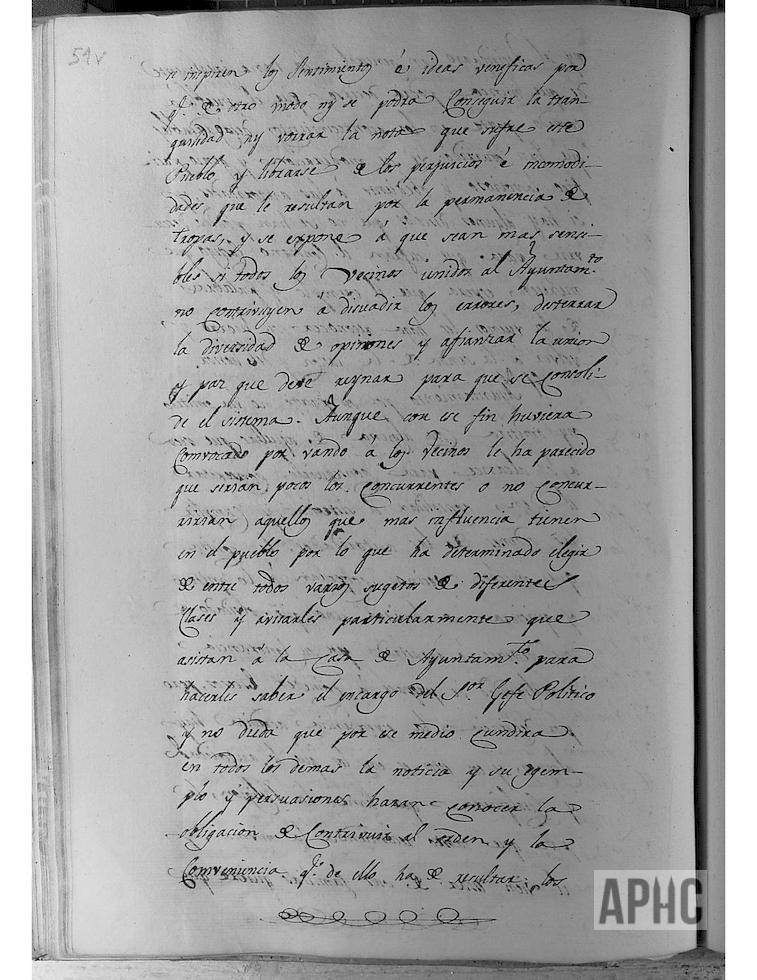 51v
se inspiren los sentimientos é ideas veneficas por
q.e de otro modo ny se podra Conseguir la tran-
quilidad ny vorrar la nota que sufre este
Pueblo y librarse de los perjuicios é incomodi-
dades que le resultan por la permanencia de
tropas, y se expone á que sean mas sensi-
bles si todos los Vecinos unidos al Ayuntam.to
no contrivuyen á disuadir los errores, desterrar
la diversidad de opiniones y afianzar la union
y paz que deve reynar para que se Consoli-
de el sistema. Aunque con ese fin huviera
Convocado por vando á los Vecinos le ha parecido
que serian pocos los Concurrentes o no Concur-
ririan aquellos que mas influencia tienen
en el pueblo por lo que ha determinado elegir
de entre todos varios sugetos de diferentes
Clases y avisarles particularmente que
asistan a la Casa de Ayuntam.to para
hacerles saber el encargo del S.or Gefe Politico
y no duda que por ese medio Cundira
en todos los demas la noticia y su egem-
plo y persuasiones haran conocer la
obligacion de Contrivuir al orden y la
Conveniencia q.e de ello ha de resultar; los
APHC